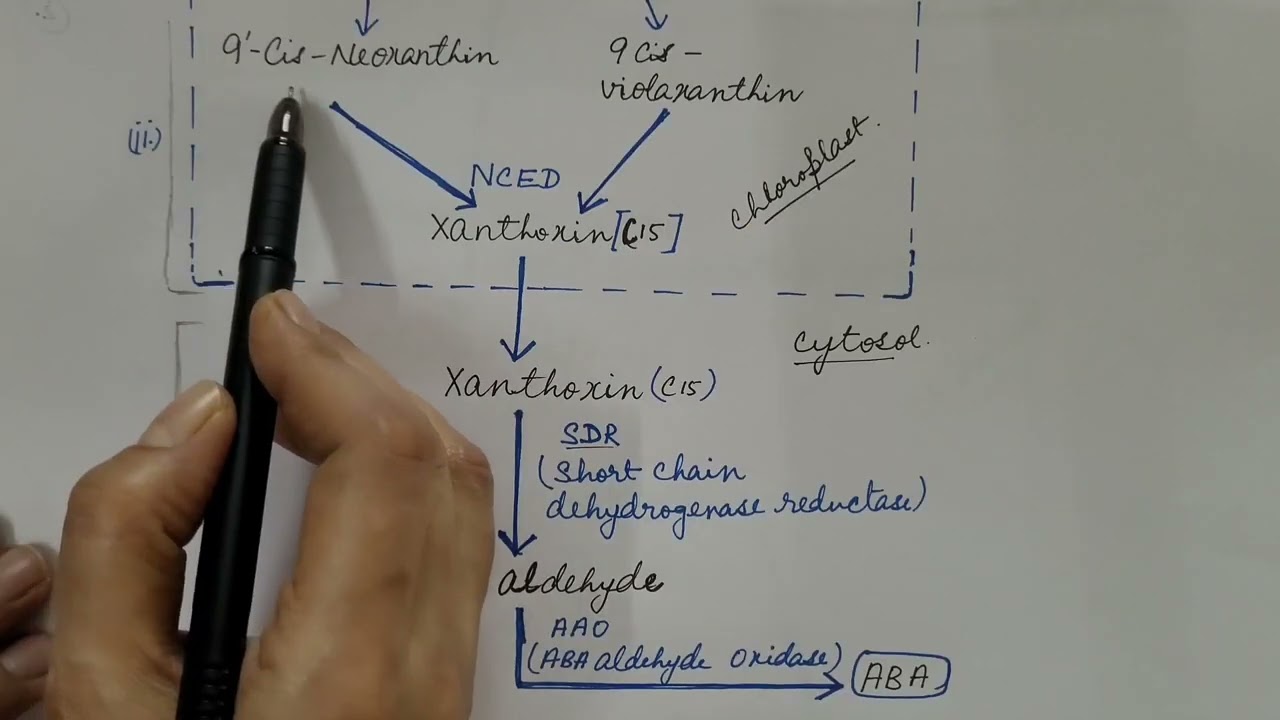 9'-Cis-Neoxanthin
9 Cis-
violaxanthin
(ii.)
NCED
chloroplast.
Xanthoxin [C15]
cytosol.
Xanthoxin (C15)
SDR
(Short chain
dehydrogenase reductase)
aldehyde
AAO
(ABA aldehyde oxidase)
ABA